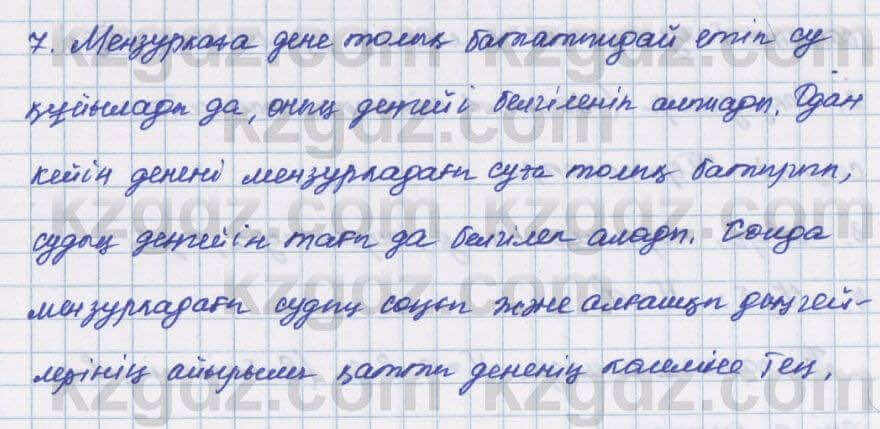 7. Мензуркаға дене толық бататындай етіп су
құйылады да, оның деңгейі белгіленіп алынады. Одан
кейін денені мензуркадағы суға толық батырып,
судың деңгейін тағы да белгілеп алады. Сонда
мензуркадағы судың соңғы және алғашқы деңгей-
лерінің айырымы қатты дененің көлеміне тең.
kzgdz.com